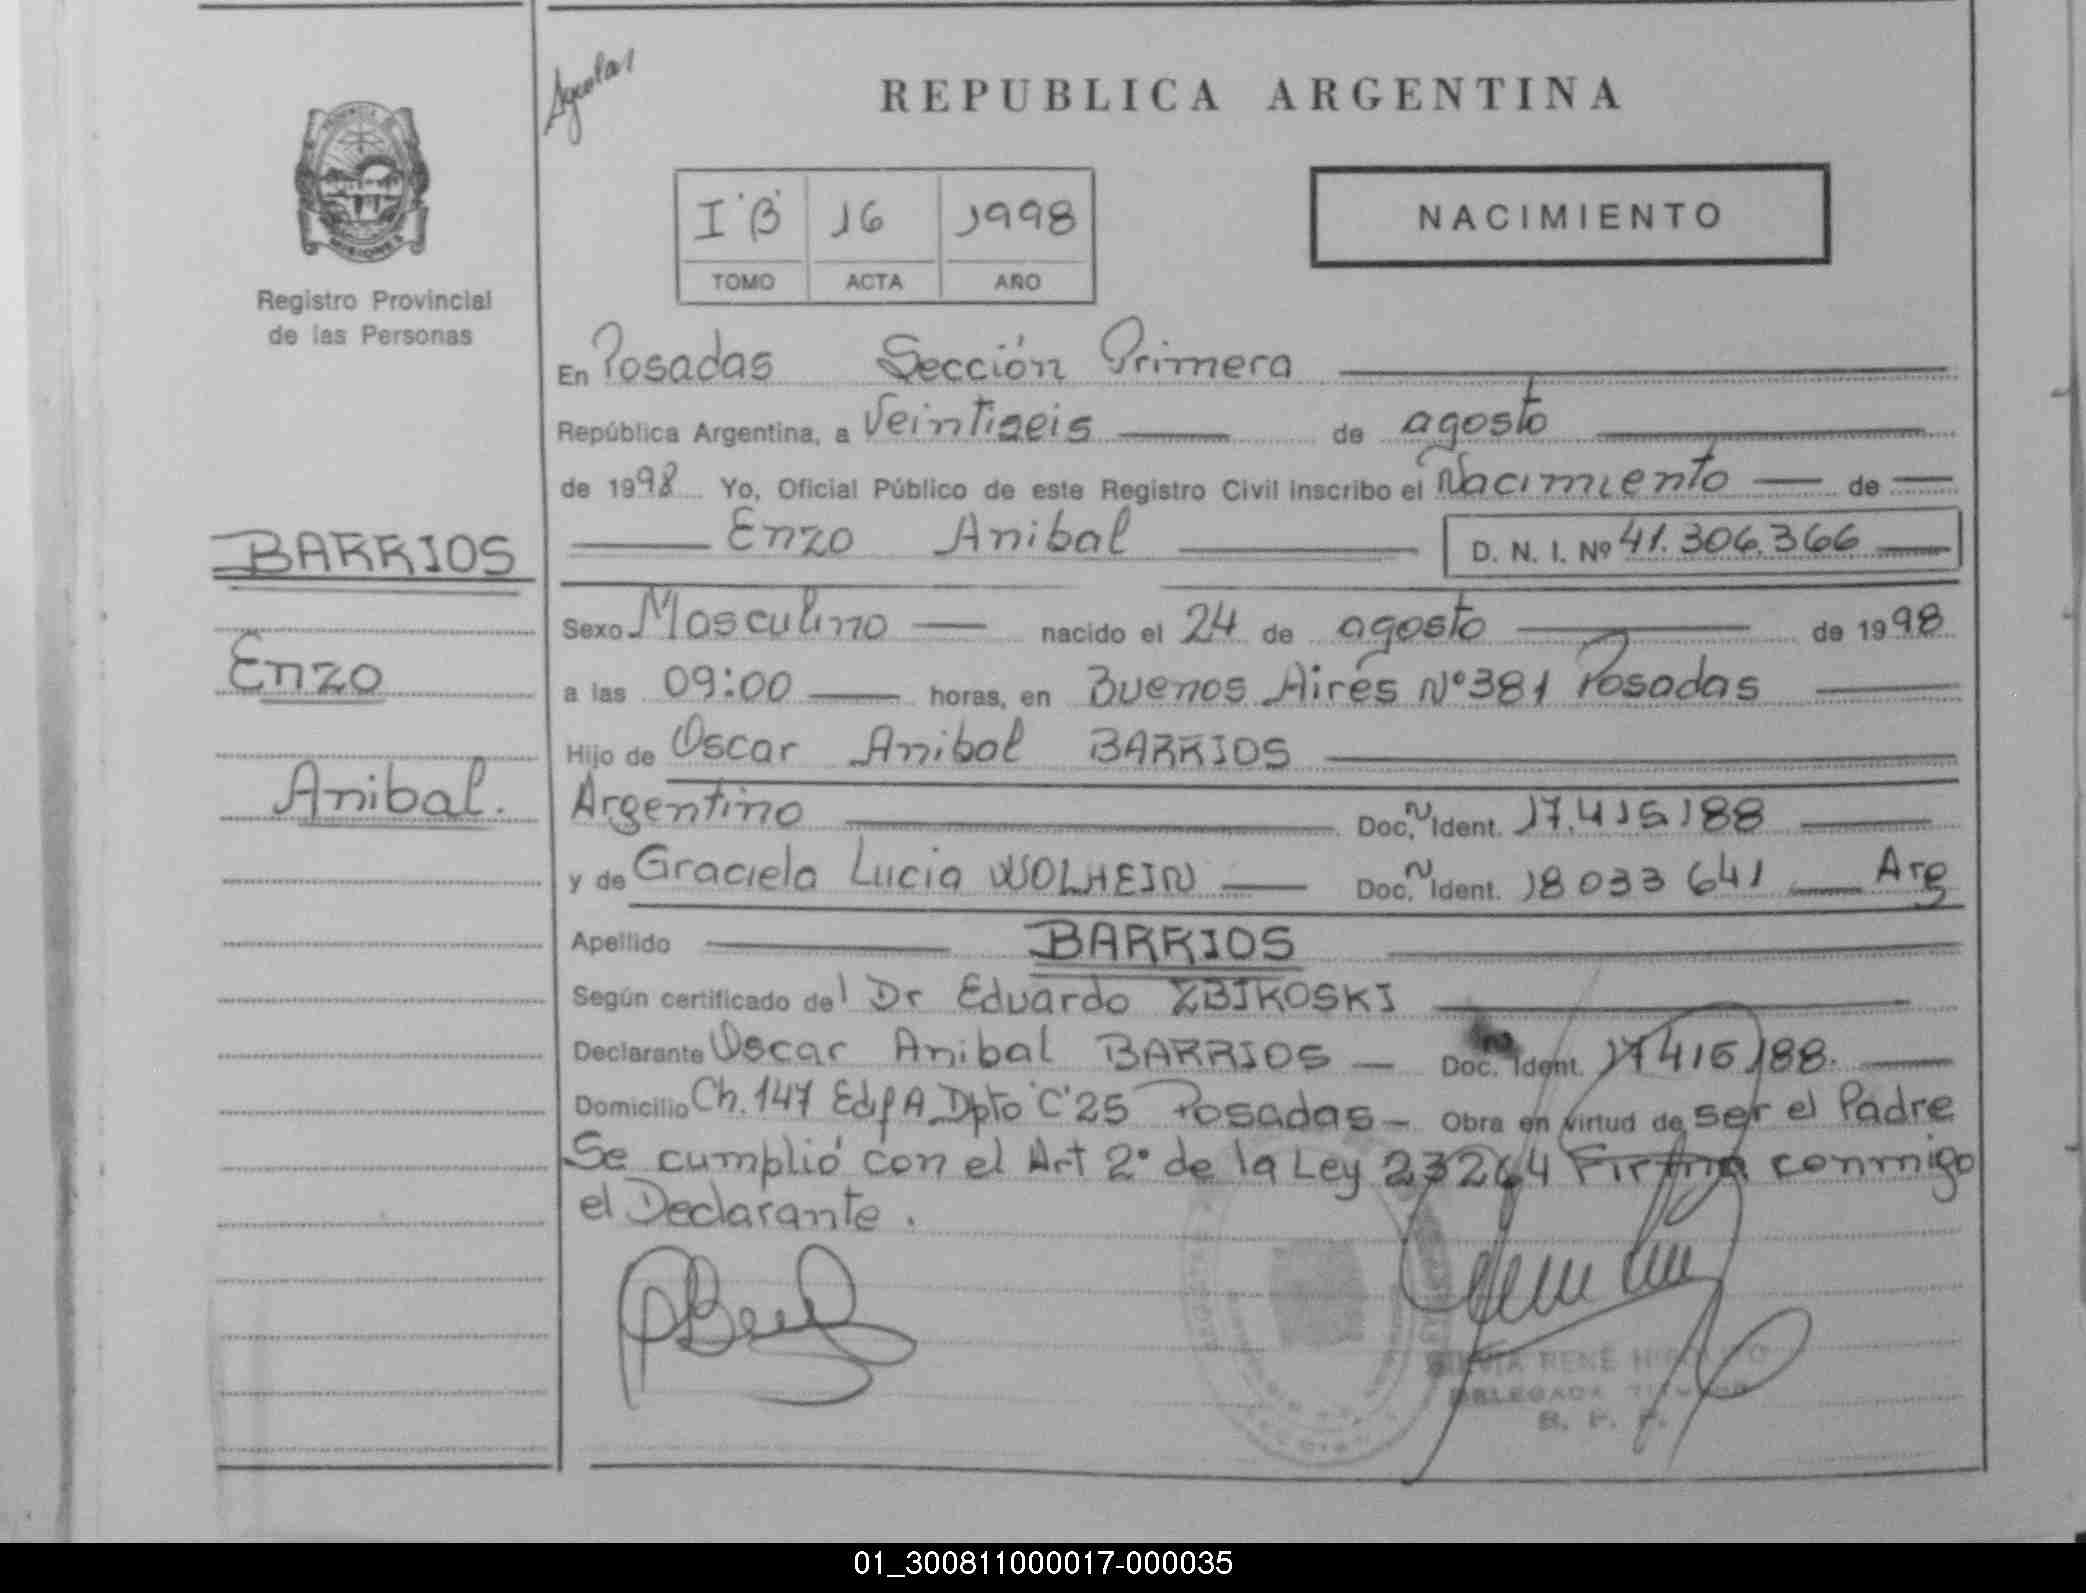 REPUBLICA ARGENTINA
I "B" 16 1998
TOMO ACTA AÑO
NACIMIENTO
Registro Provincial
de las Personas
BARRIOS
Enzo
Anibal.
En Posadas Sección Primera
República Argentina, a Veintiseis de agosto
de 1998 Yo, Oficial Público de este Registro Civil inscribo el Nacimiento de
Enzo Anibal D. N. I. Nº 41.306.366
Sexo Masculino nacido el 24 de agosto de 1998
a las 09:00 horas, en Buenos Aires Nº 381 Posadas
Hijo de Oscar Anibal BARRIOS
Argentino Doc. N Ident. 17.415188
y de Graciela Lucia WOLHEIN Doc. N Ident. 18033641 Arg
Apellido BARRIOS
Según certificado del Dr Eduardo ZBIKOSKI
Declarante Oscar Anibal BARRIOS Doc. Ident. 17415188.
Domicilio Ch. 147 Edif A Dpto "C" 25 Posadas Obra en virtud de ser el Padre
Se cumplió con el Art 2º de la Ley 23264 Firma conmigo
el Declarante.
RENÉ
DELEGADA TITULAR
01_300811000017-000035